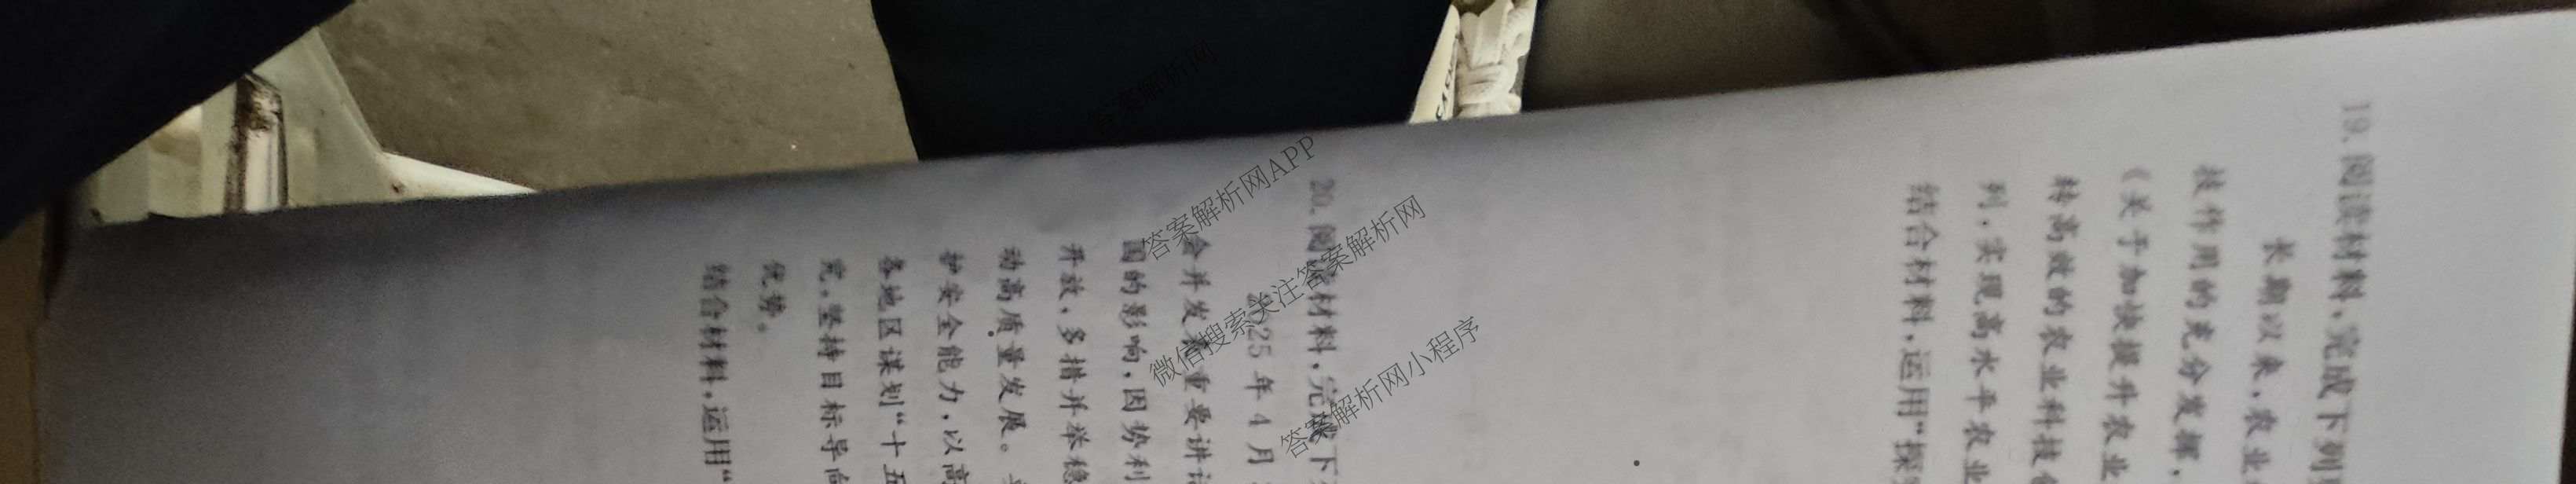 19. 阅读材料，完成下列
长期以来，农业
技作用的充分发挥，
《关于加快提升农业
转高效的农业科技
列，实现高水平农业
结合材料，运用“探
20. 阅读材料，完成下
2025年4月
会并发表重要讲话
国的影响，因势利
开放，多措并举稳
动高质量发展。
护安全能力，以高
各地区谋划“十五
究。坚持目标导向
优势。
结合材料，运用“
答案解析网
答案解析网APP
微信搜索关注答案解析网
答案解析网小程序